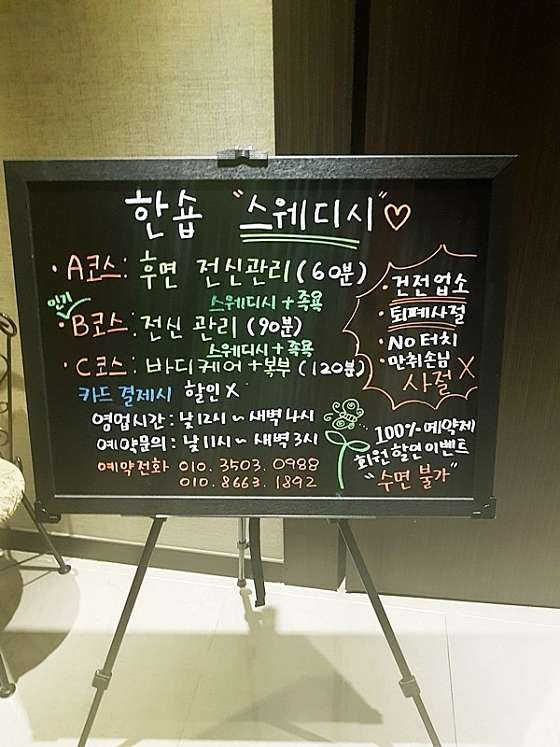 한숍 "스웨디시"♡
· A코스: 후면 전신관리 (60분)
스웨디시 + 족욕
인기
· B코스: 전신 관리 (90분)
스웨디시 + 족욕
· C코스: 바디케어 + 복부 (120분)
카드 결제시 할인 X
영업시간 : 낮12시 ~ 새벽 4시
예약문의 : 낮11시 ~ 새벽 3시
예약전화 010. 3503. 0988
010. 8663. 1892
· 건전업소
· 퇴폐사절
· NO 터치
· 만취손님
사절 X
100% 예약제
회원할인 이벤트
"수면 불가"